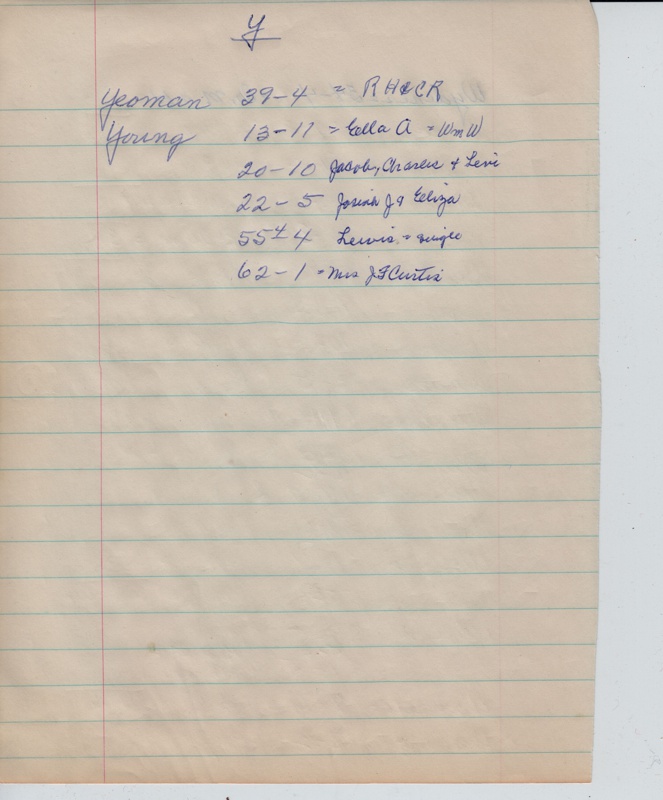 Y
Yeoman 39-4 = R H & C R
Young 13-17 = Ella A = Wm W
20-10 Jacob, Charles & Levi
22-5 Josiah J & Eliza
55-4 Lewis = single
62-1 = Mrs J F Curtis